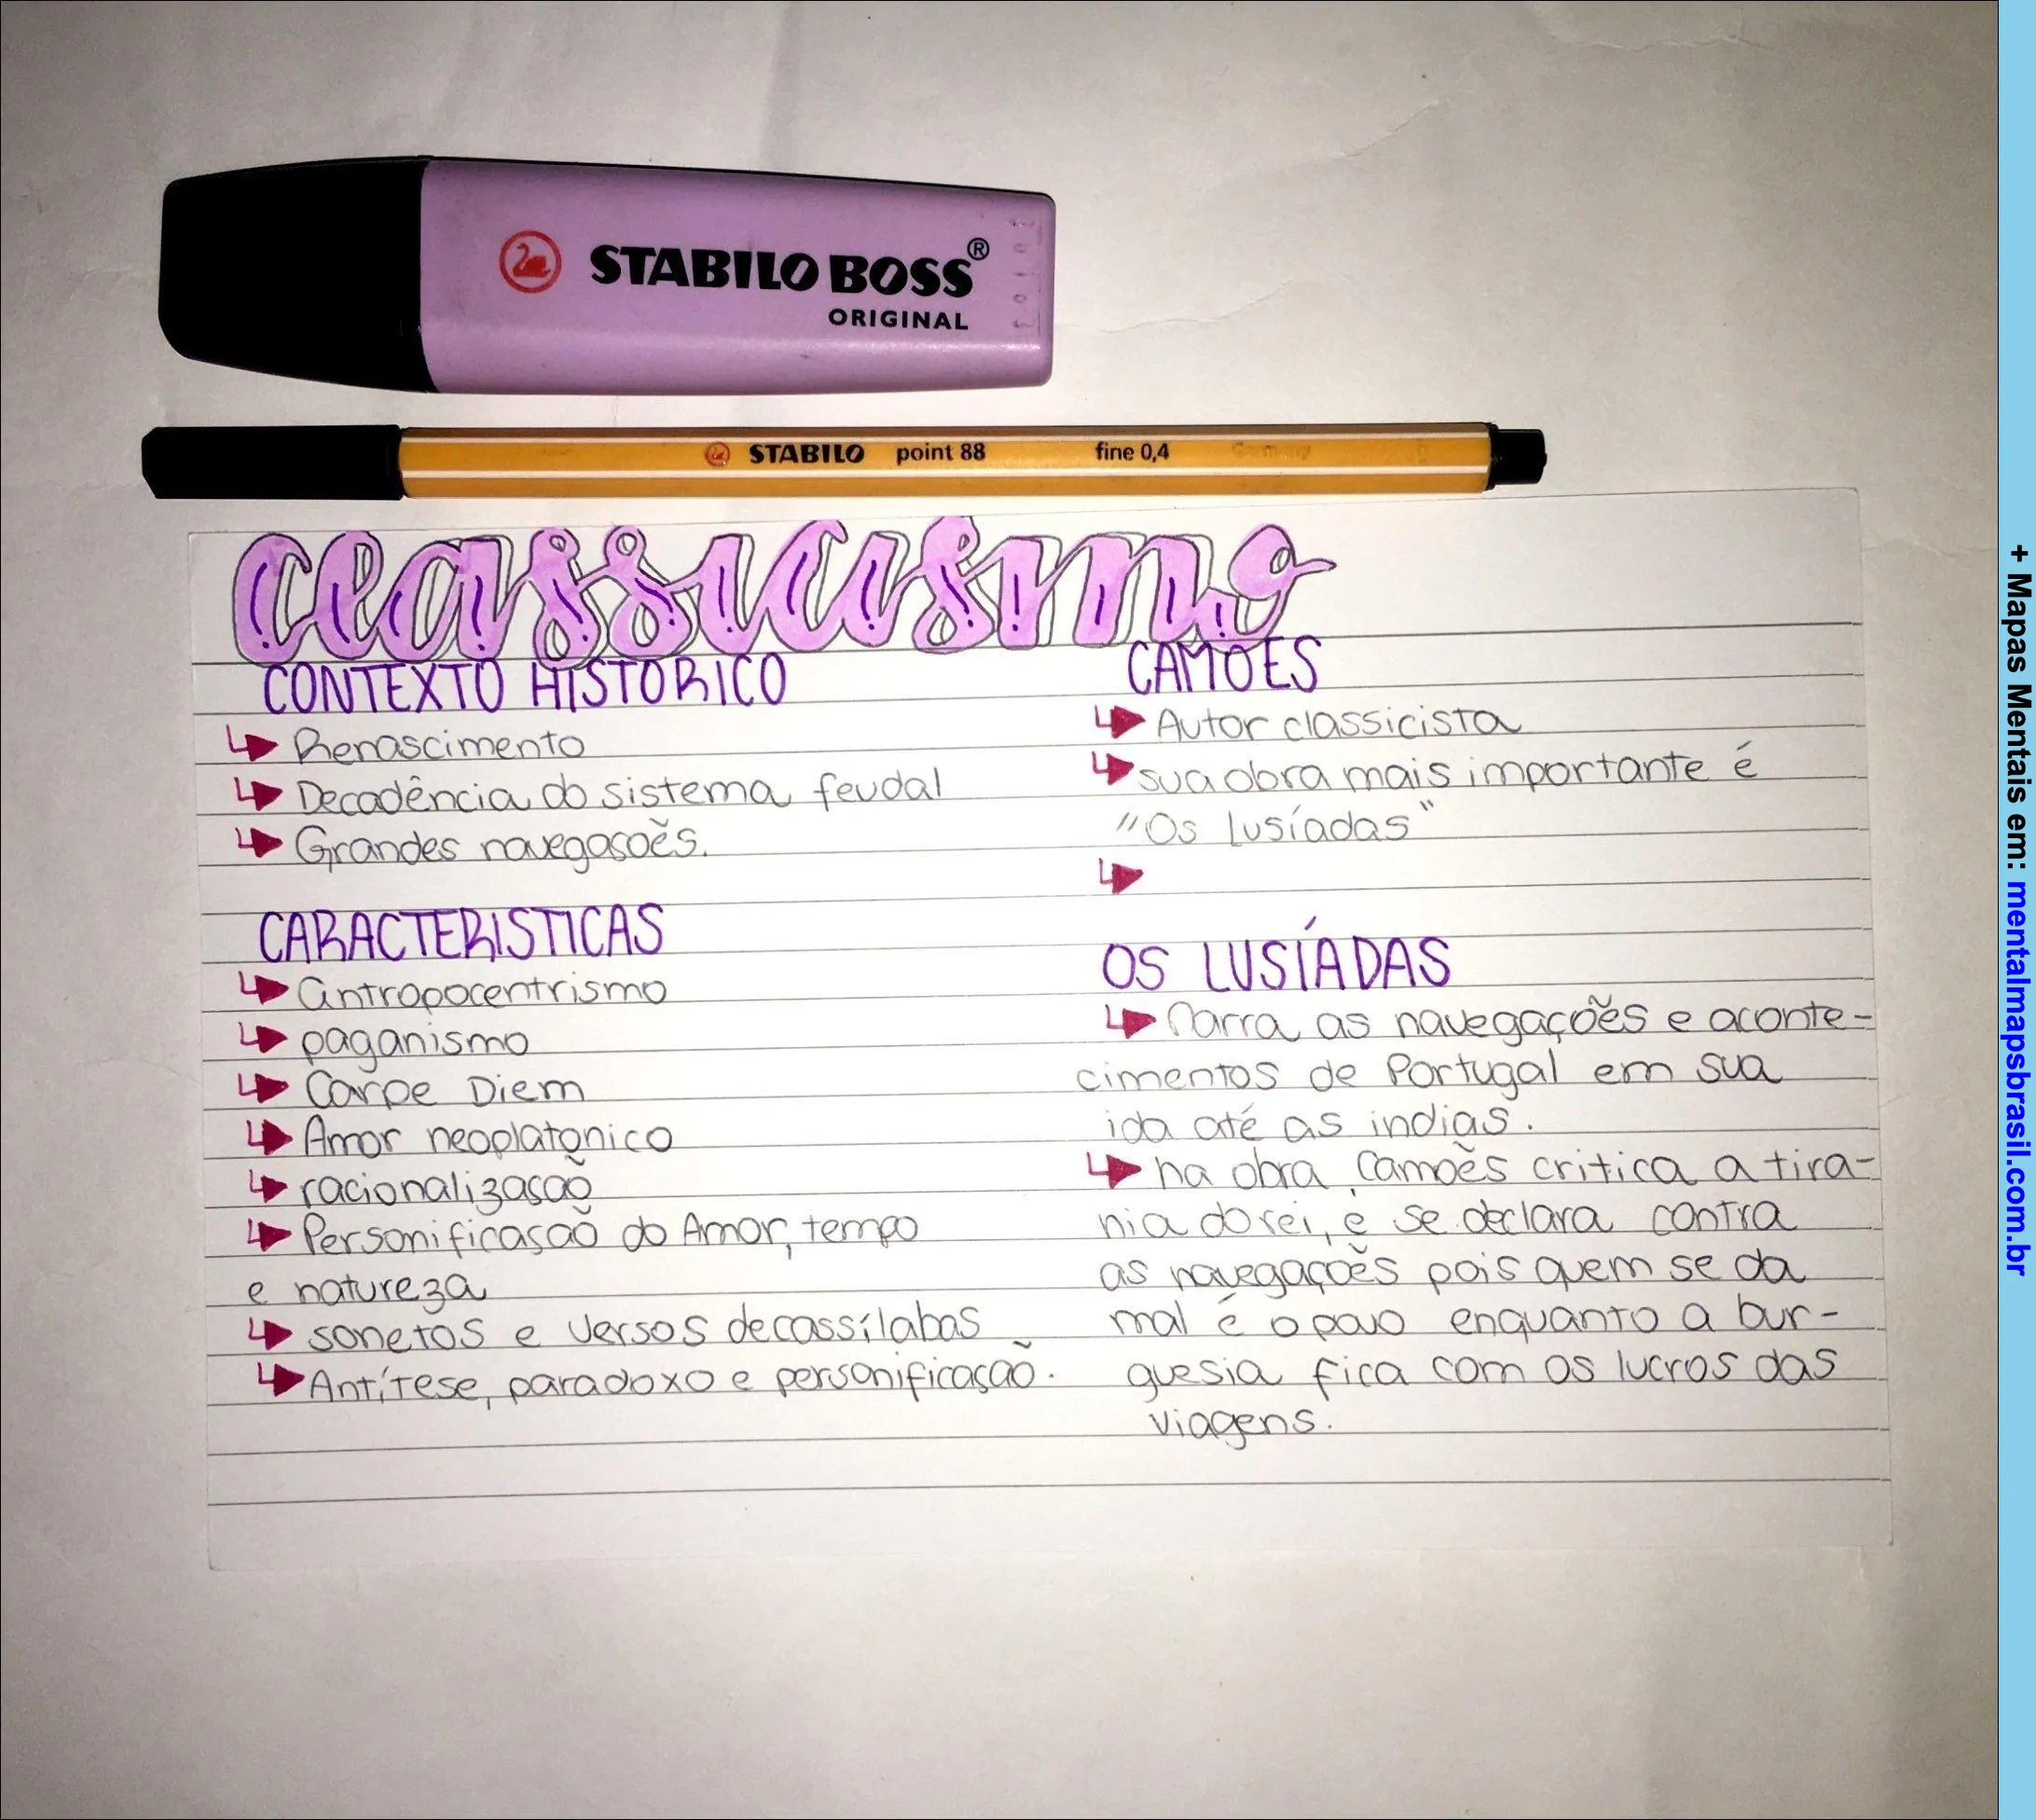 STABILO BOSS®
ORIGINAL
STABILO point 88 fine 0,4
classicismo
CONTEXTO HISTORICO
Renascimento
Decadência do sistema feudal
Grandes navegasoẽs.
CARACTERISTICAS
antropocentrismo
paganismo
Carpe Diem
Amor neoplatonico
racionalizasaõ
Personificasaõ do Amor, tempo
e natureza
sonetos e versos decassílabas
Antítese, paradoxo e personificasaõ.
CAMOES
Autor classicista
sua obra mais importante é
"Os Lusíadas"
OS LUSÍADAS
Narra as navegaçoẽs e aconte-
cimentos de Portugal em sua
ida até as indias.
na obra, Camoẽs critica a tira-
nia do rei, e se declara contra
as navegaçoẽs pois quem se da
mal é o povo enquanto a bur-
guesia fica com os lucros das
viagens.
+ Mapas Mentais em: mentalmapsbrasil.com.br